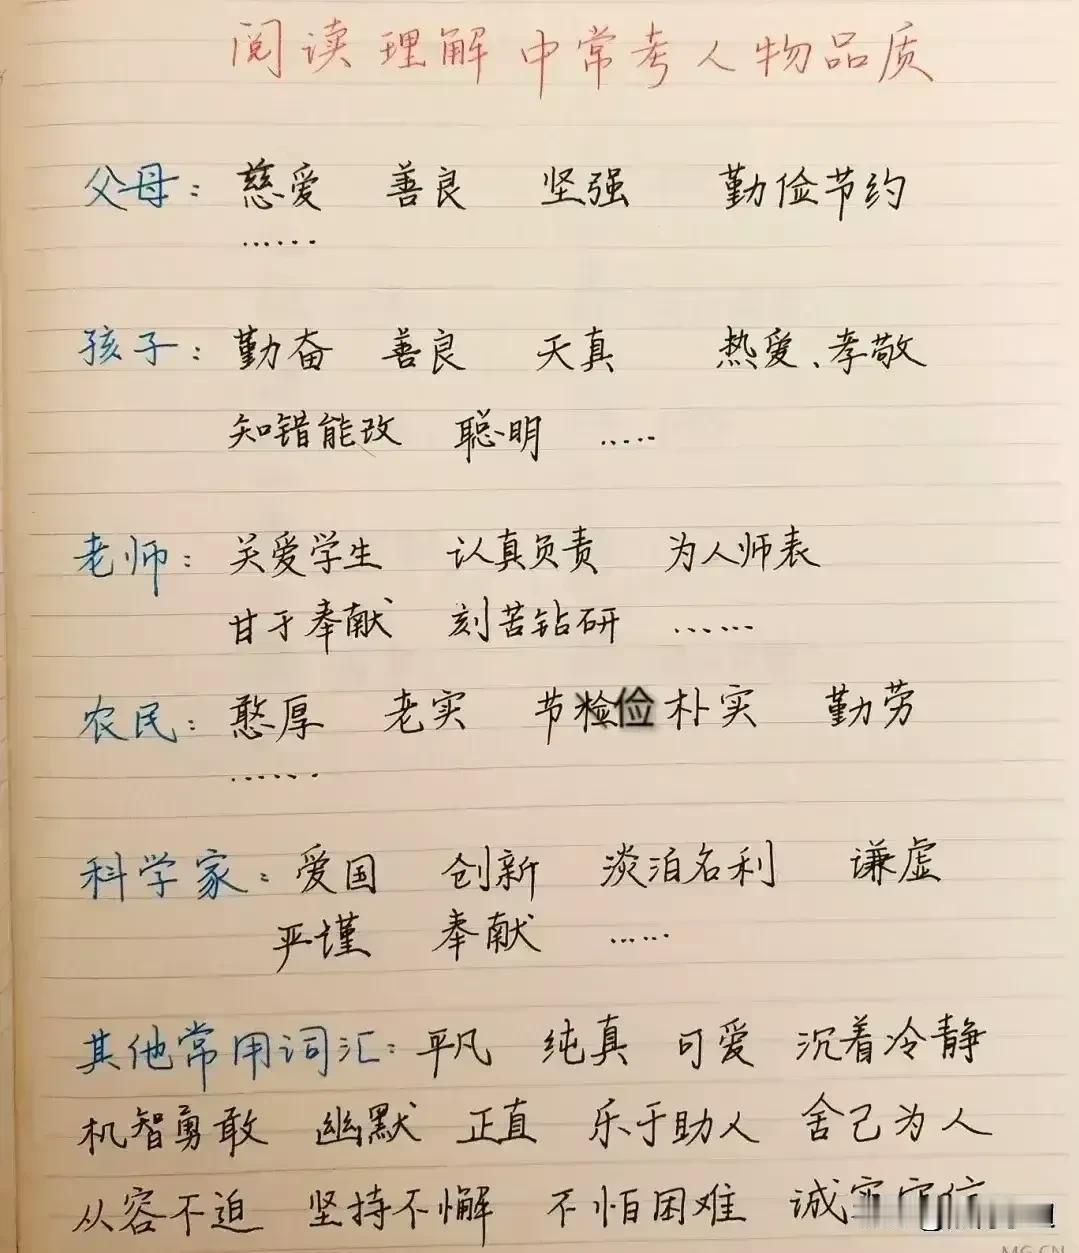 阅读理解中常考人物品质
父母： 慈爱 善良 坚强 勤俭节约
……
孩子： 勤奋 善良 天真 热爱、孝敬
知错能改 聪明 ……
老师： 关爱学生 认真负责 为人师表
甘于奉献 刻苦钻研 ……
农民： 憨厚 老实 节俭 朴实 勤劳
……
科学家： 爱国 创新 淡泊名利 谦虚
严谨 奉献 ……
其他常用词汇： 平凡 纯真 可爱 沉着冷静
机智勇敢 幽默 正直 乐于助人 舍己为人
从容不迫 坚持不懈 不怕困难 诚实守信